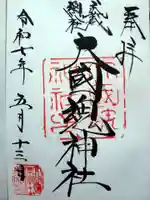 奉拝
武蔵
総社
大國魂神社
令和七年 五月十三日